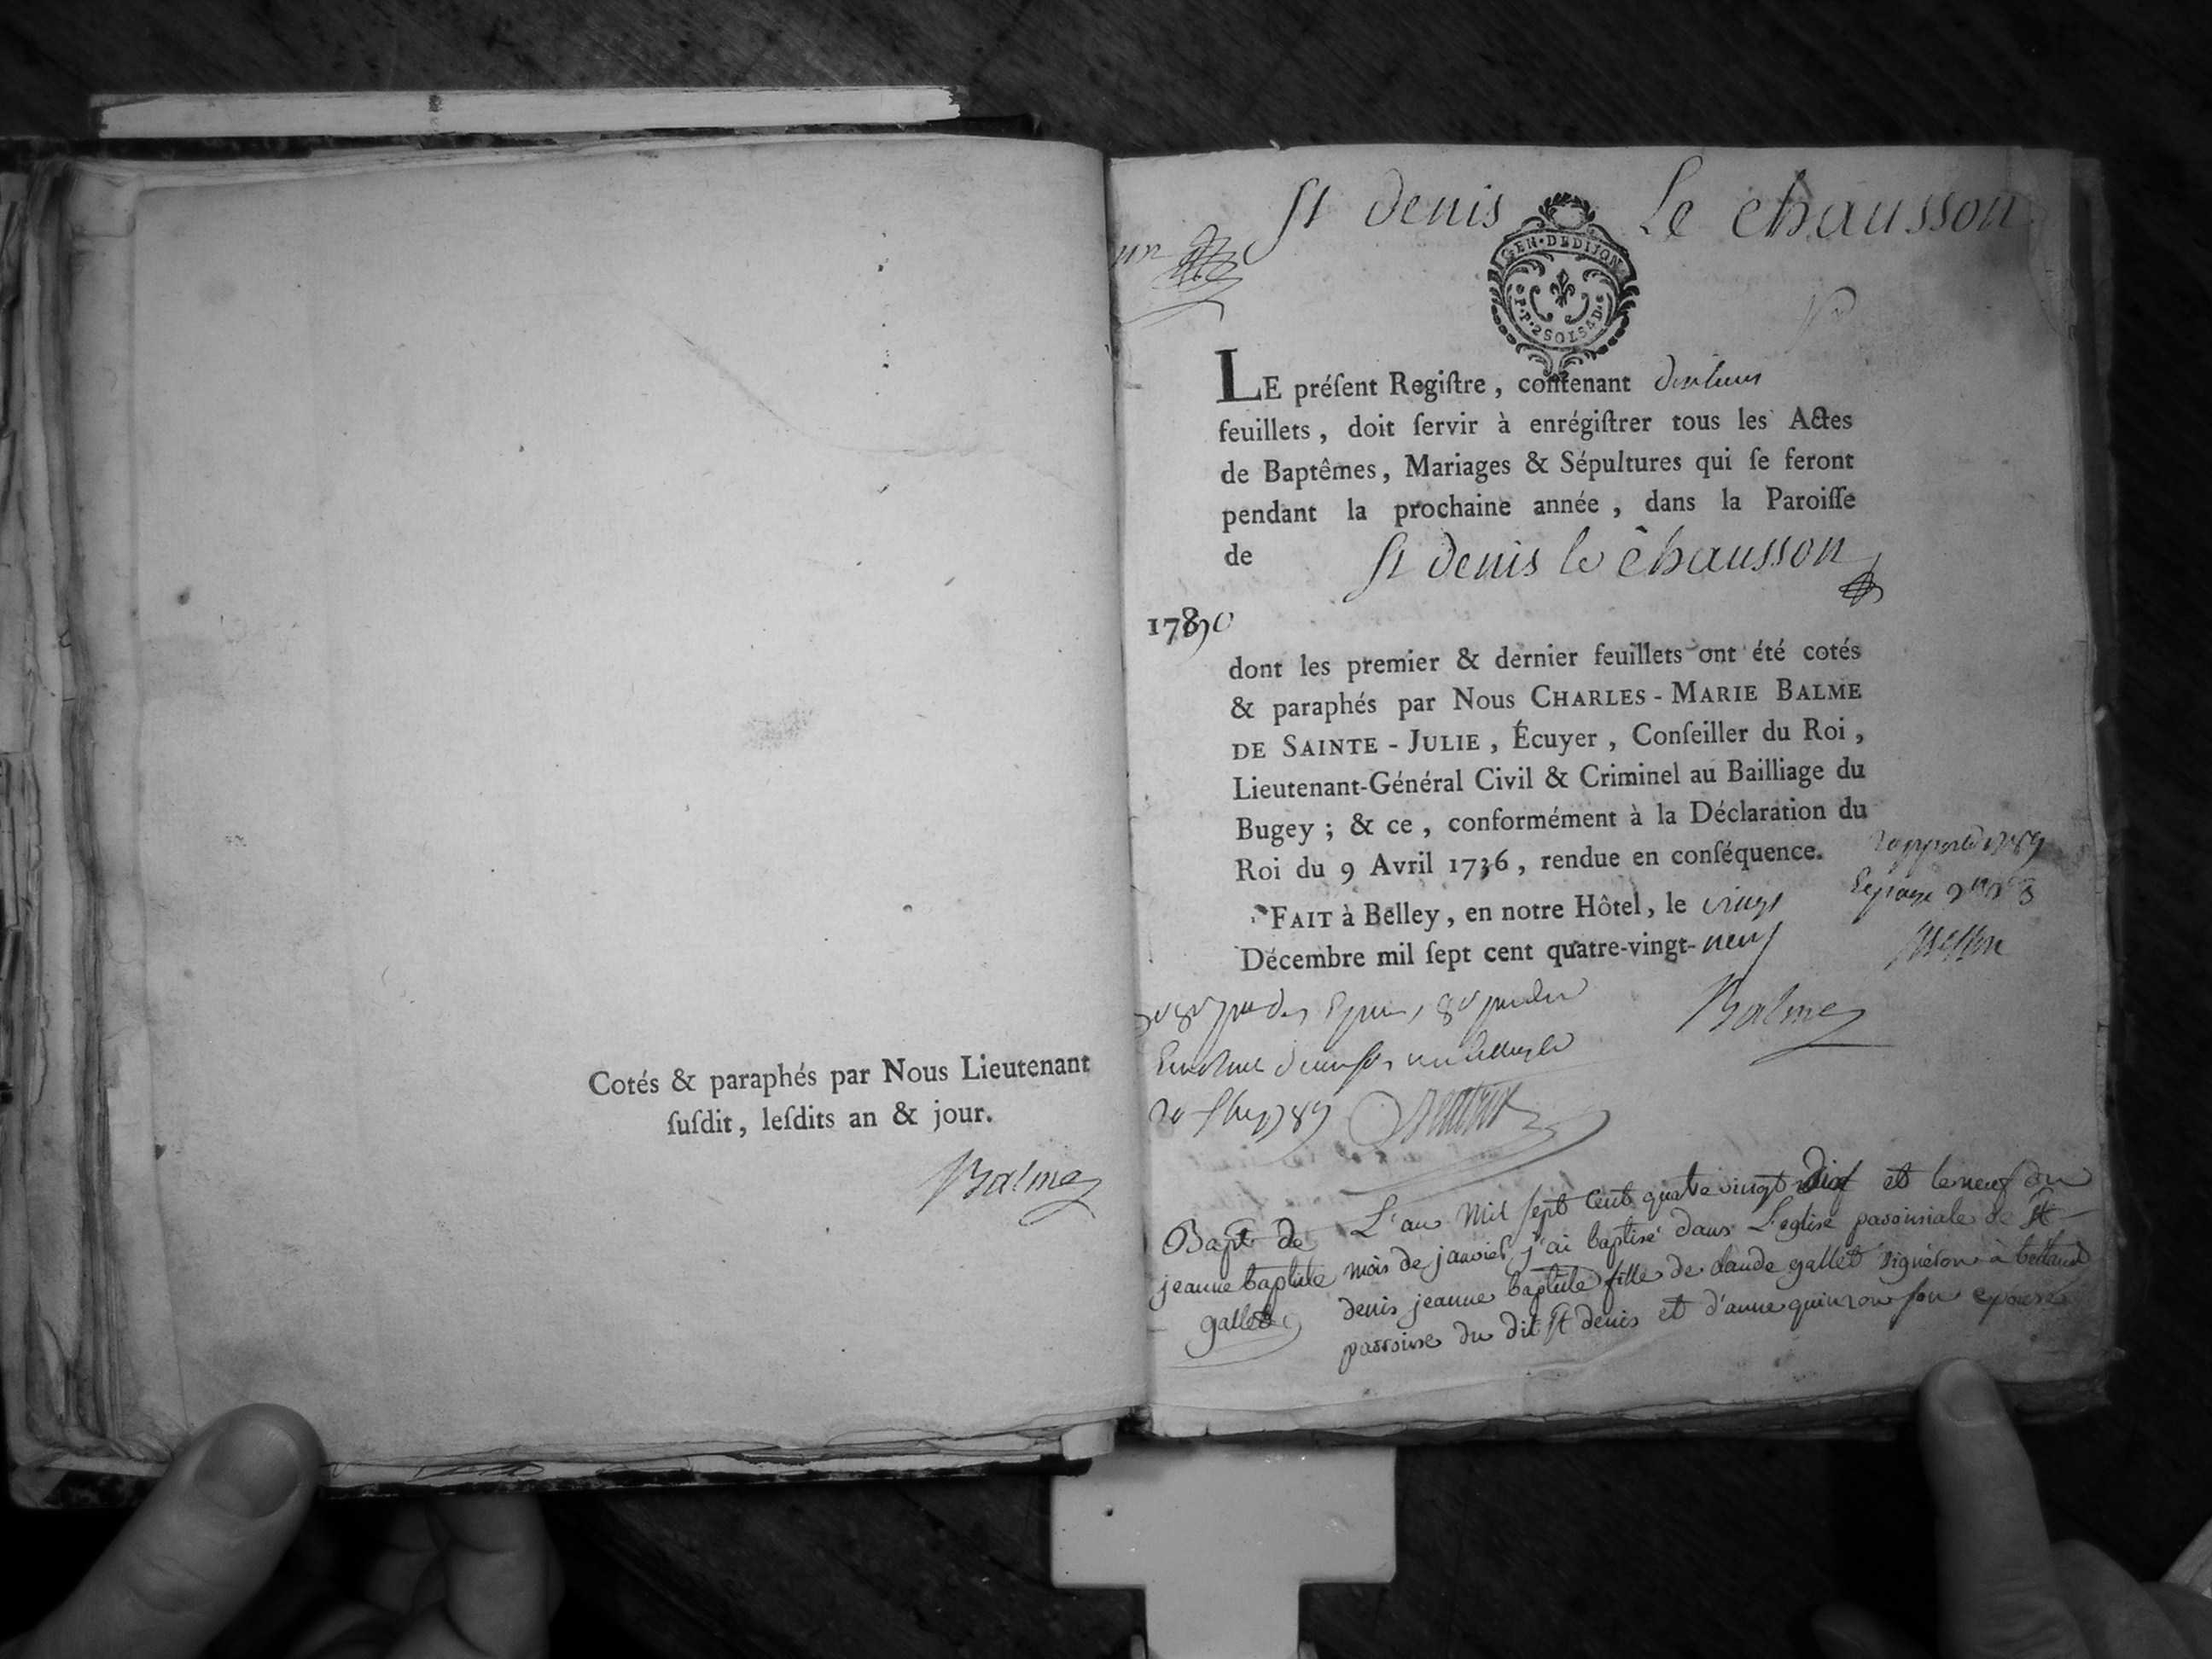 Cotés & paraphés par Nous Lieutenant
ſuſdit, leſdits an & jour.
Balme
St denis Le chausson
un
GEN·DE DIJON
P·P·2 SOLS 4 D·
LE préſent Regiſtre, contenant
feuillets, doit ſervir à enrégiſtrer tous les Actes
de Baptêmes, Mariages & Sépultures qui ſe feront
pendant la prochaine année, dans la Paroiſſe
de St denis le chausson
1790
dont les premier & dernier feuillets ont été cotés
& paraphés par Nous CHARLES-MARIE BALME
DE SAINTE-JULIE, Écuyer, Conſeiller du Roi,
Lieutenant-Général Civil & Criminel au Bailliage du
Bugey; & ce, conformément à la Déclaration du
Roi du 9 Avril 1736, rendue en conſéquence.
FAIT à Belley, en notre Hôtel, le vingt
Décembre mil ſept cent quatre-vingt-neuf
Balme
Bapt de
jeanne baptiste
gallet
L'an mil sept cent quatre vingt dix et le neuf du
mois de janvier, j'ai baptisé dans L'eglise paroissiale de St
denis jeanne baptiste fille de claude gallet vigneron à
parroisse du dit St denis et d'anne son epouse